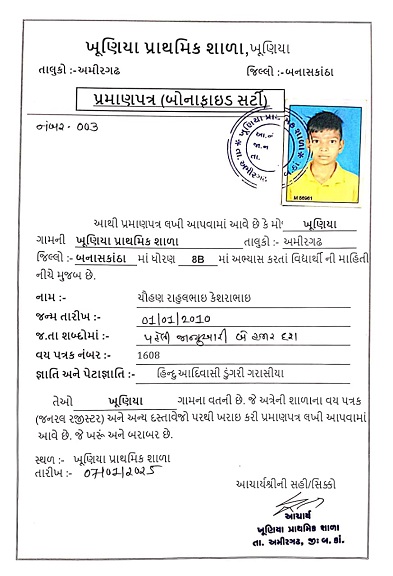 ખૂણિયા પ્રાથમિક શાળા,ખૂણિયા
તાલુકો :-અમીરગઢ જિલ્લો :-બનાસકાંઠા
પ્રમાણપત્ર (બોનાફાઇડ સર્ટી)
નંબર - 003
M 86961
આથી પ્રમાણપત્ર લખી આપવામાં આવે છે કે મો' ખૂણિયા
ગામની ખૂણિયા પ્રાથમિક શાળા તાલુકો :- અમીરગઢ
જિલ્લો :- બનાસકાંઠા માં ધોરણ 8B માં અભ્યાસ કરતાં વિદ્યાર્થી ની માહિતી
નીચે મુજબ છે.
નામ :- ચૌહાણ રાહુલભાઇ કેશરાભાઇ
જન્મ તારીખ :- 01/01/2010
જ.તા શબ્દોમાં :- પહેલી જાન્યુઆરી બે હજાર દશ
વય પત્રક નંબર :- 1608
જ્ઞાતિ અને પેટાજ્ઞાતિ :- હિન્દુ આદિવાસી ડુંગરી ગરાસીયા
તેઓ ખૂણિયા ગામના વતની છે. જે અત્રેની શાળાના વય પત્રક
(જનરલ રજીસ્ટર) અને અન્ય દસ્તાવેજો પરથી ખરાઇ કરી પ્રમાણપત્ર લખી આપવામાં
આવે છે. જે ખરૂં અને બરાબર છે.
સ્થળ :- ખૂણિયા પ્રાથમિક શાળા
તારીખ :- 07/02/2025
આચાર્યશ્રીની સહી/સિક્કો
આચાર્ય
ખૂણિયા પ્રાથમિક શાળા
તા. અમીરગઢ, જી: બ. કાં.